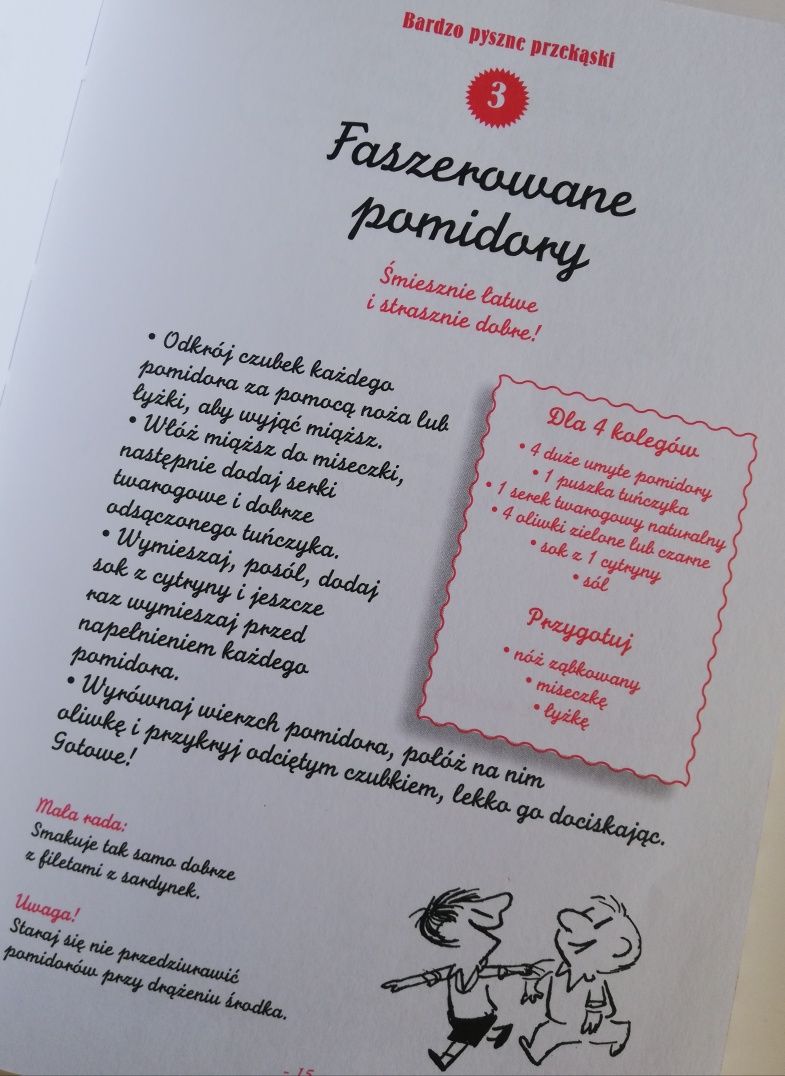 Bardzo pyszne przekąski
3
Faszerowane
pomidory
Śmiesznie łatwe
i strasznie dobre!
• Odkrój czubek każdego
pomidora za pomocą noża lub
łyżki, aby wyjąć miąższ.
• Włóż miąższ do miseczki,
następnie dodaj serki
twarogowe i dobrze
odsączonego tuńczyka.
• Wymieszaj, posól, dodaj
sok z cytryny i jeszcze
raz wymieszaj przed
napełnieniem każdego
pomidora.
• Wyrównaj wierzch pomidora, połóż na nim
oliwkę i przykryj odciętym czubkiem, lekko go dociskając.
Gotowe!
Dla 4 kolegów
• 4 duże umyte pomidory
• 1 puszka tuńczyka
• 1 serek twarogowy naturalny
• 4 oliwki zielone lub czarne
• sok z 1 cytryny
• sól
Przygotuj
• nóż ząbkowany
• miseczkę
• łyżkę
Mała rada:
Smakuje tak samo dobrze
z filetami z sardynek.
Uwaga!
Staraj się nie przedziurawić
pomidorów przy drążeniu środka.
- 15